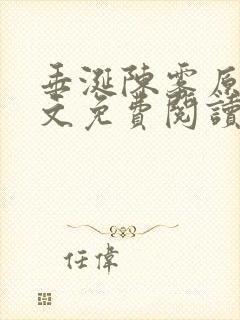 垂涎陳雾原
文免費閱讀
任偉